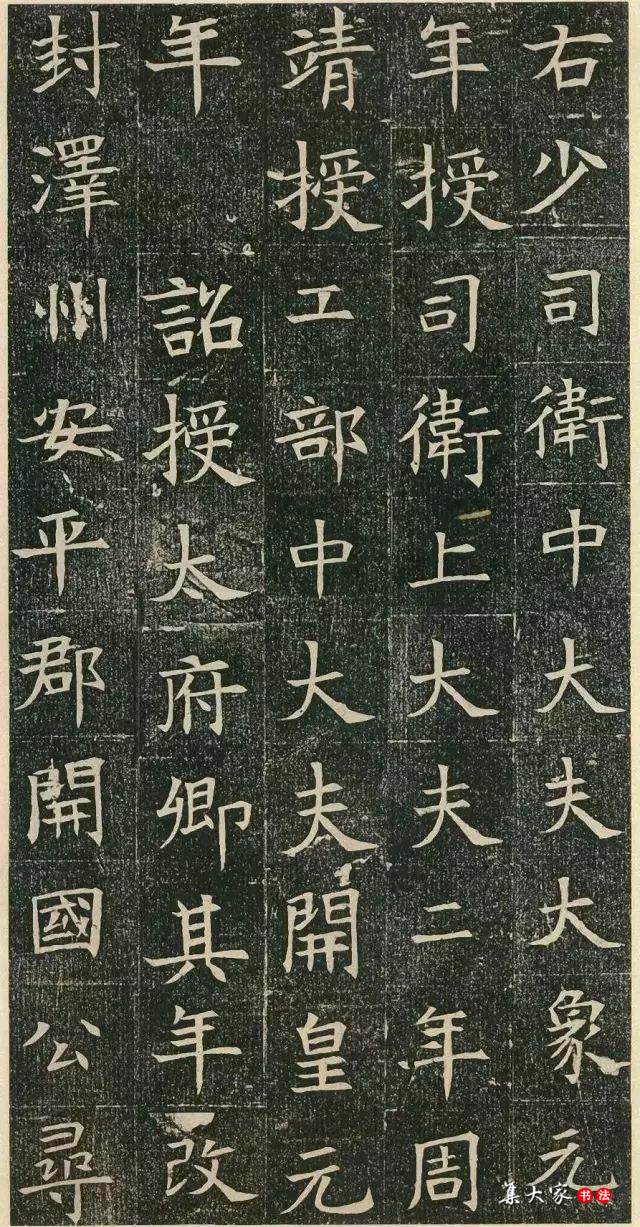 右少司衛中大夫大象元
年授司衛上大夫二年周
靖授工部中大夫開皇元
年 詔授太府卿其年改
封澤州安平郡開國公尋
集大家书法